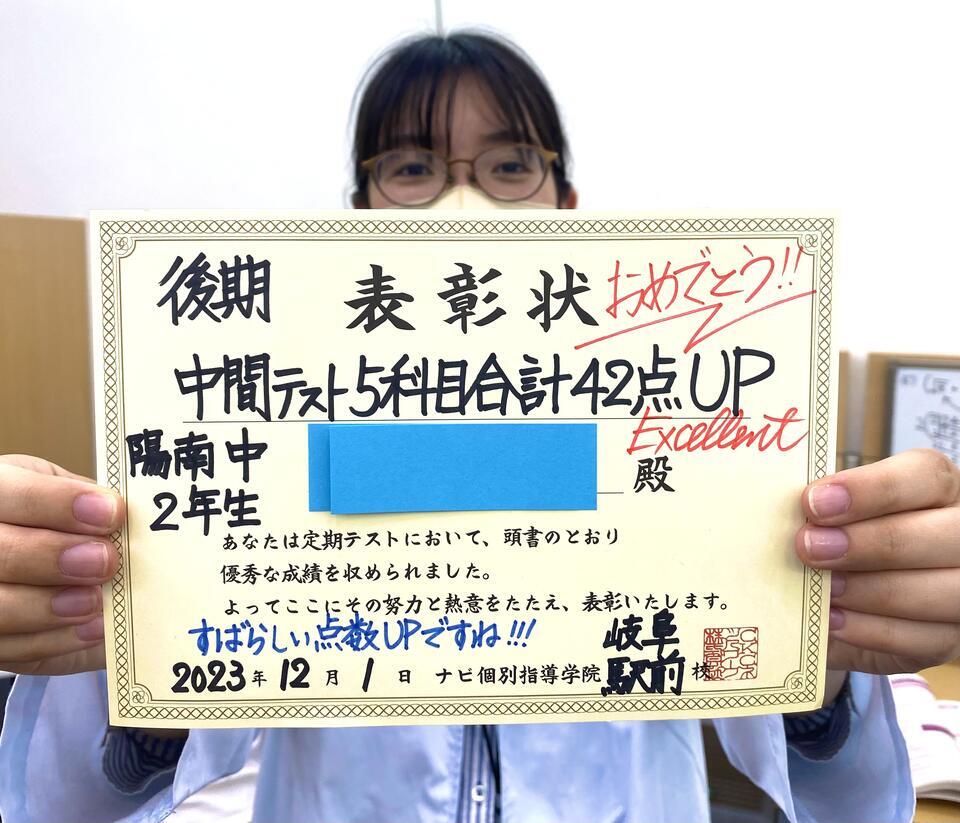 後期 表彰状 おめでとう!!
中間テスト5科目合計42点UP
Excellent
陽南中
2年生
殿
あなたは定期テストにおいて、頭書のとおり
優秀な成績を収められました。
よってここにその努力と熱意をたたえ、表彰いたします。
すばらしい点数UPですね!!!
2023年 12月 1日 ナビ個別指導学院 岐阜駅前 校